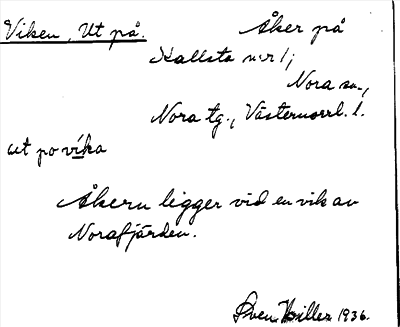 Viken, Ut på. Åker på
Kallsta nr 1;
Nora sn.,
Nora tg., Västernorrl. l.
ut po vika
Åkern ligger vid en vik av
Norafjärden.
Sven Hillen 1936.